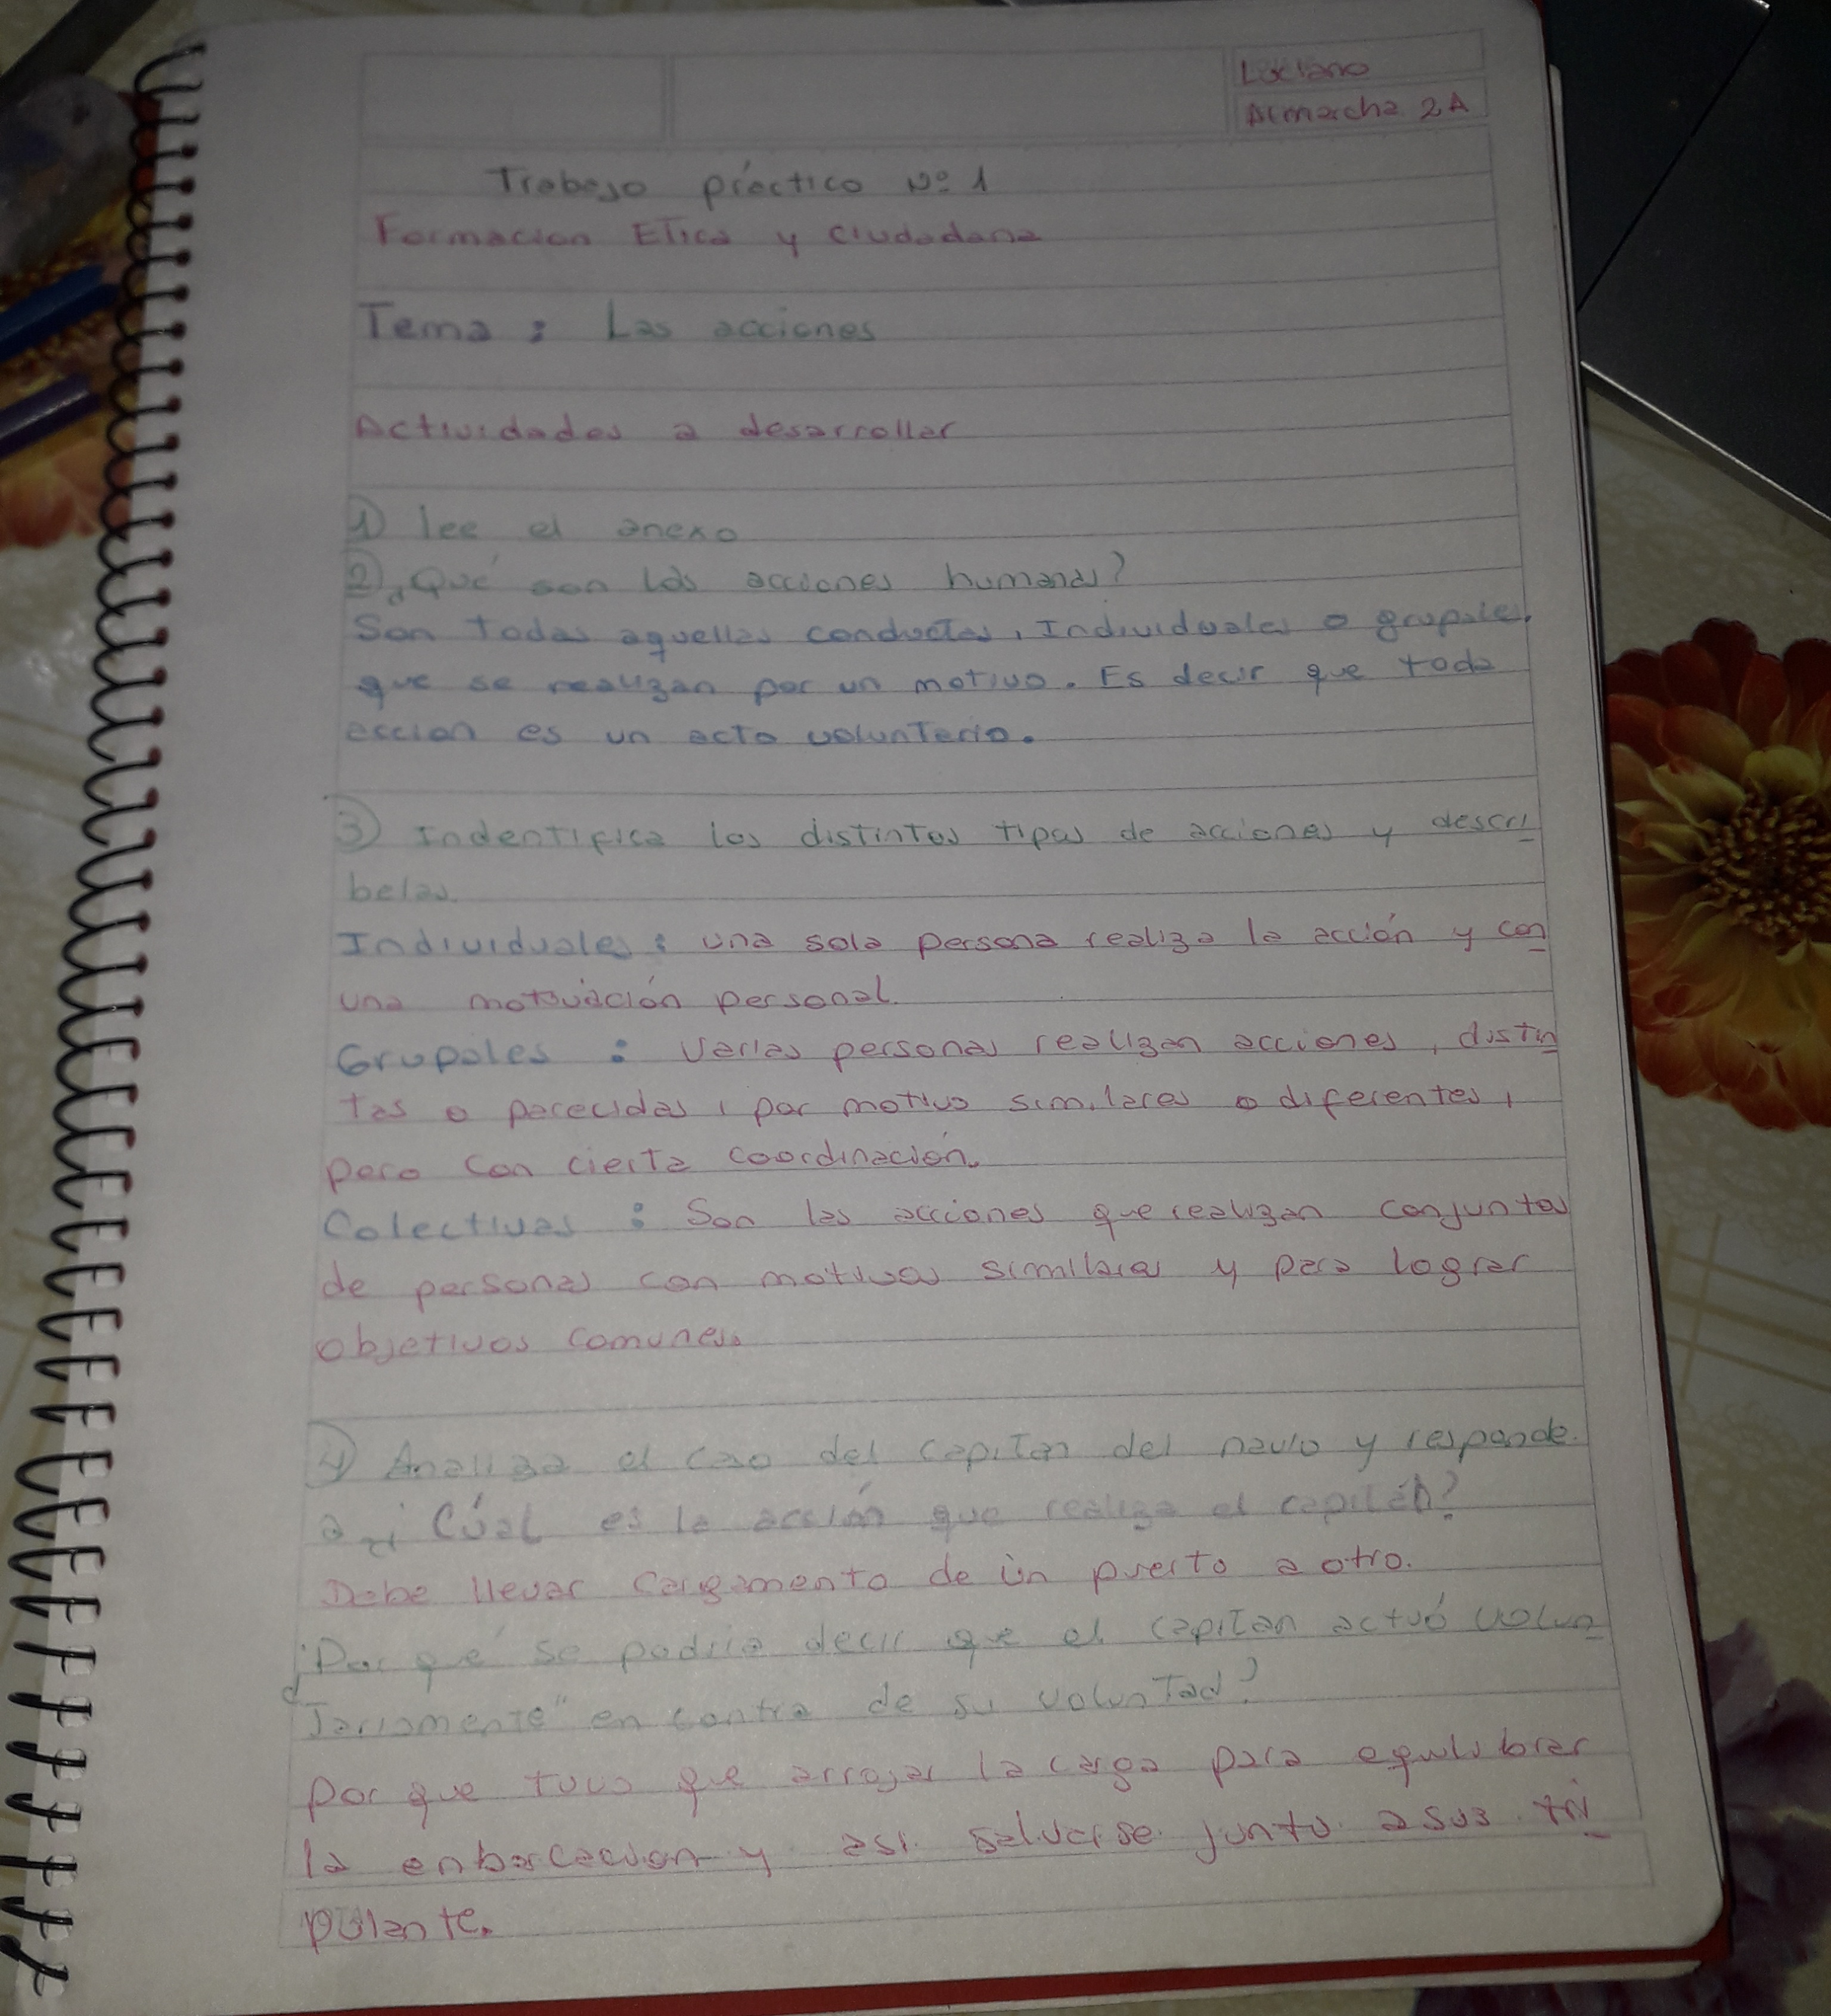 Luciano
Almarcha 2A
Trabajo práctico Nº 1
Formacion Etica y ciudadana
Tema : Las acciones
Actividades a desarroller
1) lee el anexo
2) ¿Qué son las acciones humanas?
Son todas aquellas conductas, Individuales o grupales,
que se realizan por un motivo. Es decir que toda
accion es un acto voluntario.
3) Indentifica los distintos tipos de acciones y descri
belas.
Individuales : una sola persona realiza la acción y con
una motivación personal.
Grupales : Varias personas realizan acciones, distin
tas o parecidas, por motivo similares o diferentes,
pero con cierta coordinación.
Colectivas : Son las acciones que realizan conjuntos
de personas con motivos similares y para lograr
objetivos comunes.
4) Analiza el caso del capitan del navio y responde.
a- ¿Cúal es la acción que realiza el capitán?
Debe llevar cargamento de un puerto a otro.
¿Por qué se podria decir que el capitan actuó volun
tariamente" en contra de su voluntad?
por que tuvo que arrojar la carga para equilibrar
la enbarcacion y asi salvarse junto a sus tri
pulante.